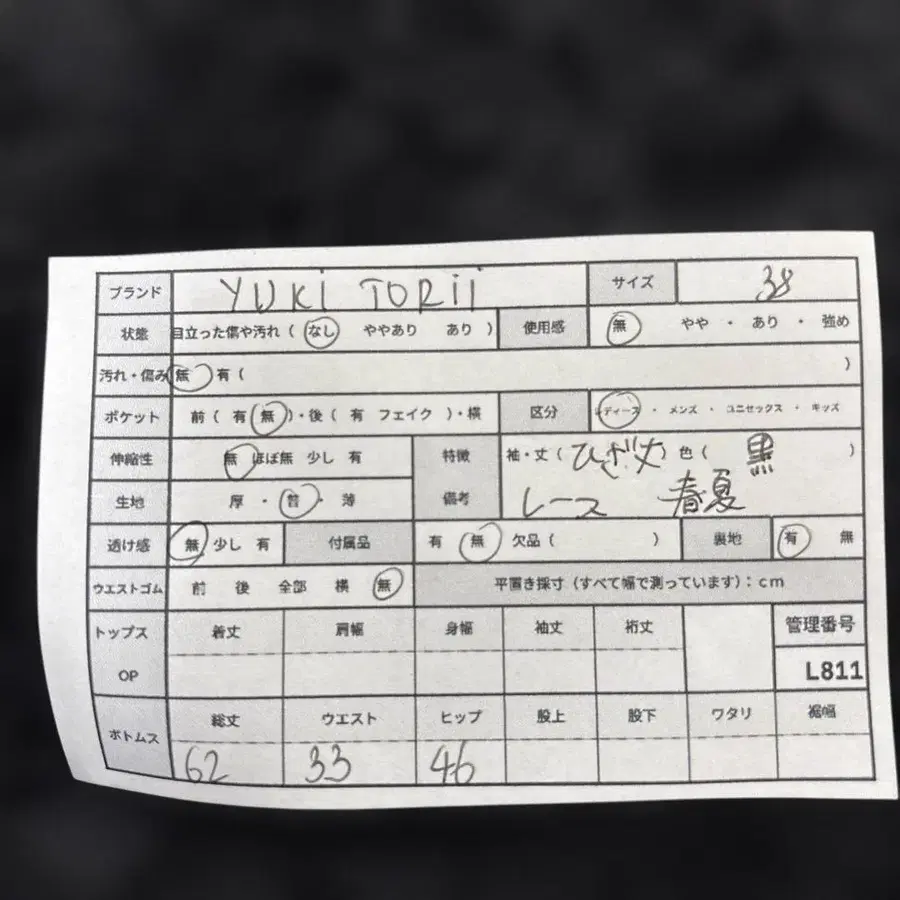 ブランド YUKi TORii サイズ 38
状態 目立った傷や汚れ ( なし ややあり あり ) 使用感 無 やや ・ あり ・ 強め
汚れ・傷み 無 有 ( )
ポケット 前 ( 有 無 )・後 ( 有 フェイク )・横 区分 レディース ・ メンズ ・ ユニセックス ・ キッズ
伸縮性 無 ほぼ無 少し 有 特徴 袖・丈 ( ひざ丈 ) 色 ( 黒 )
生地 厚 ・ 普 ・ 薄 備考 レース 春夏
透け感 無 少し 有 付属品 有 無 欠品 ( ) 裏地 有 無
ウエストゴム 前 後 全部 横 無 平置き採寸 (すべて幅で測っています) : cm
トップス 着丈 肩幅 身幅 袖丈 裄丈 管理番号
OP L811
ボトムス 総丈 ウエスト ヒップ 股上 股下 ワタリ 裾幅
62 33 46